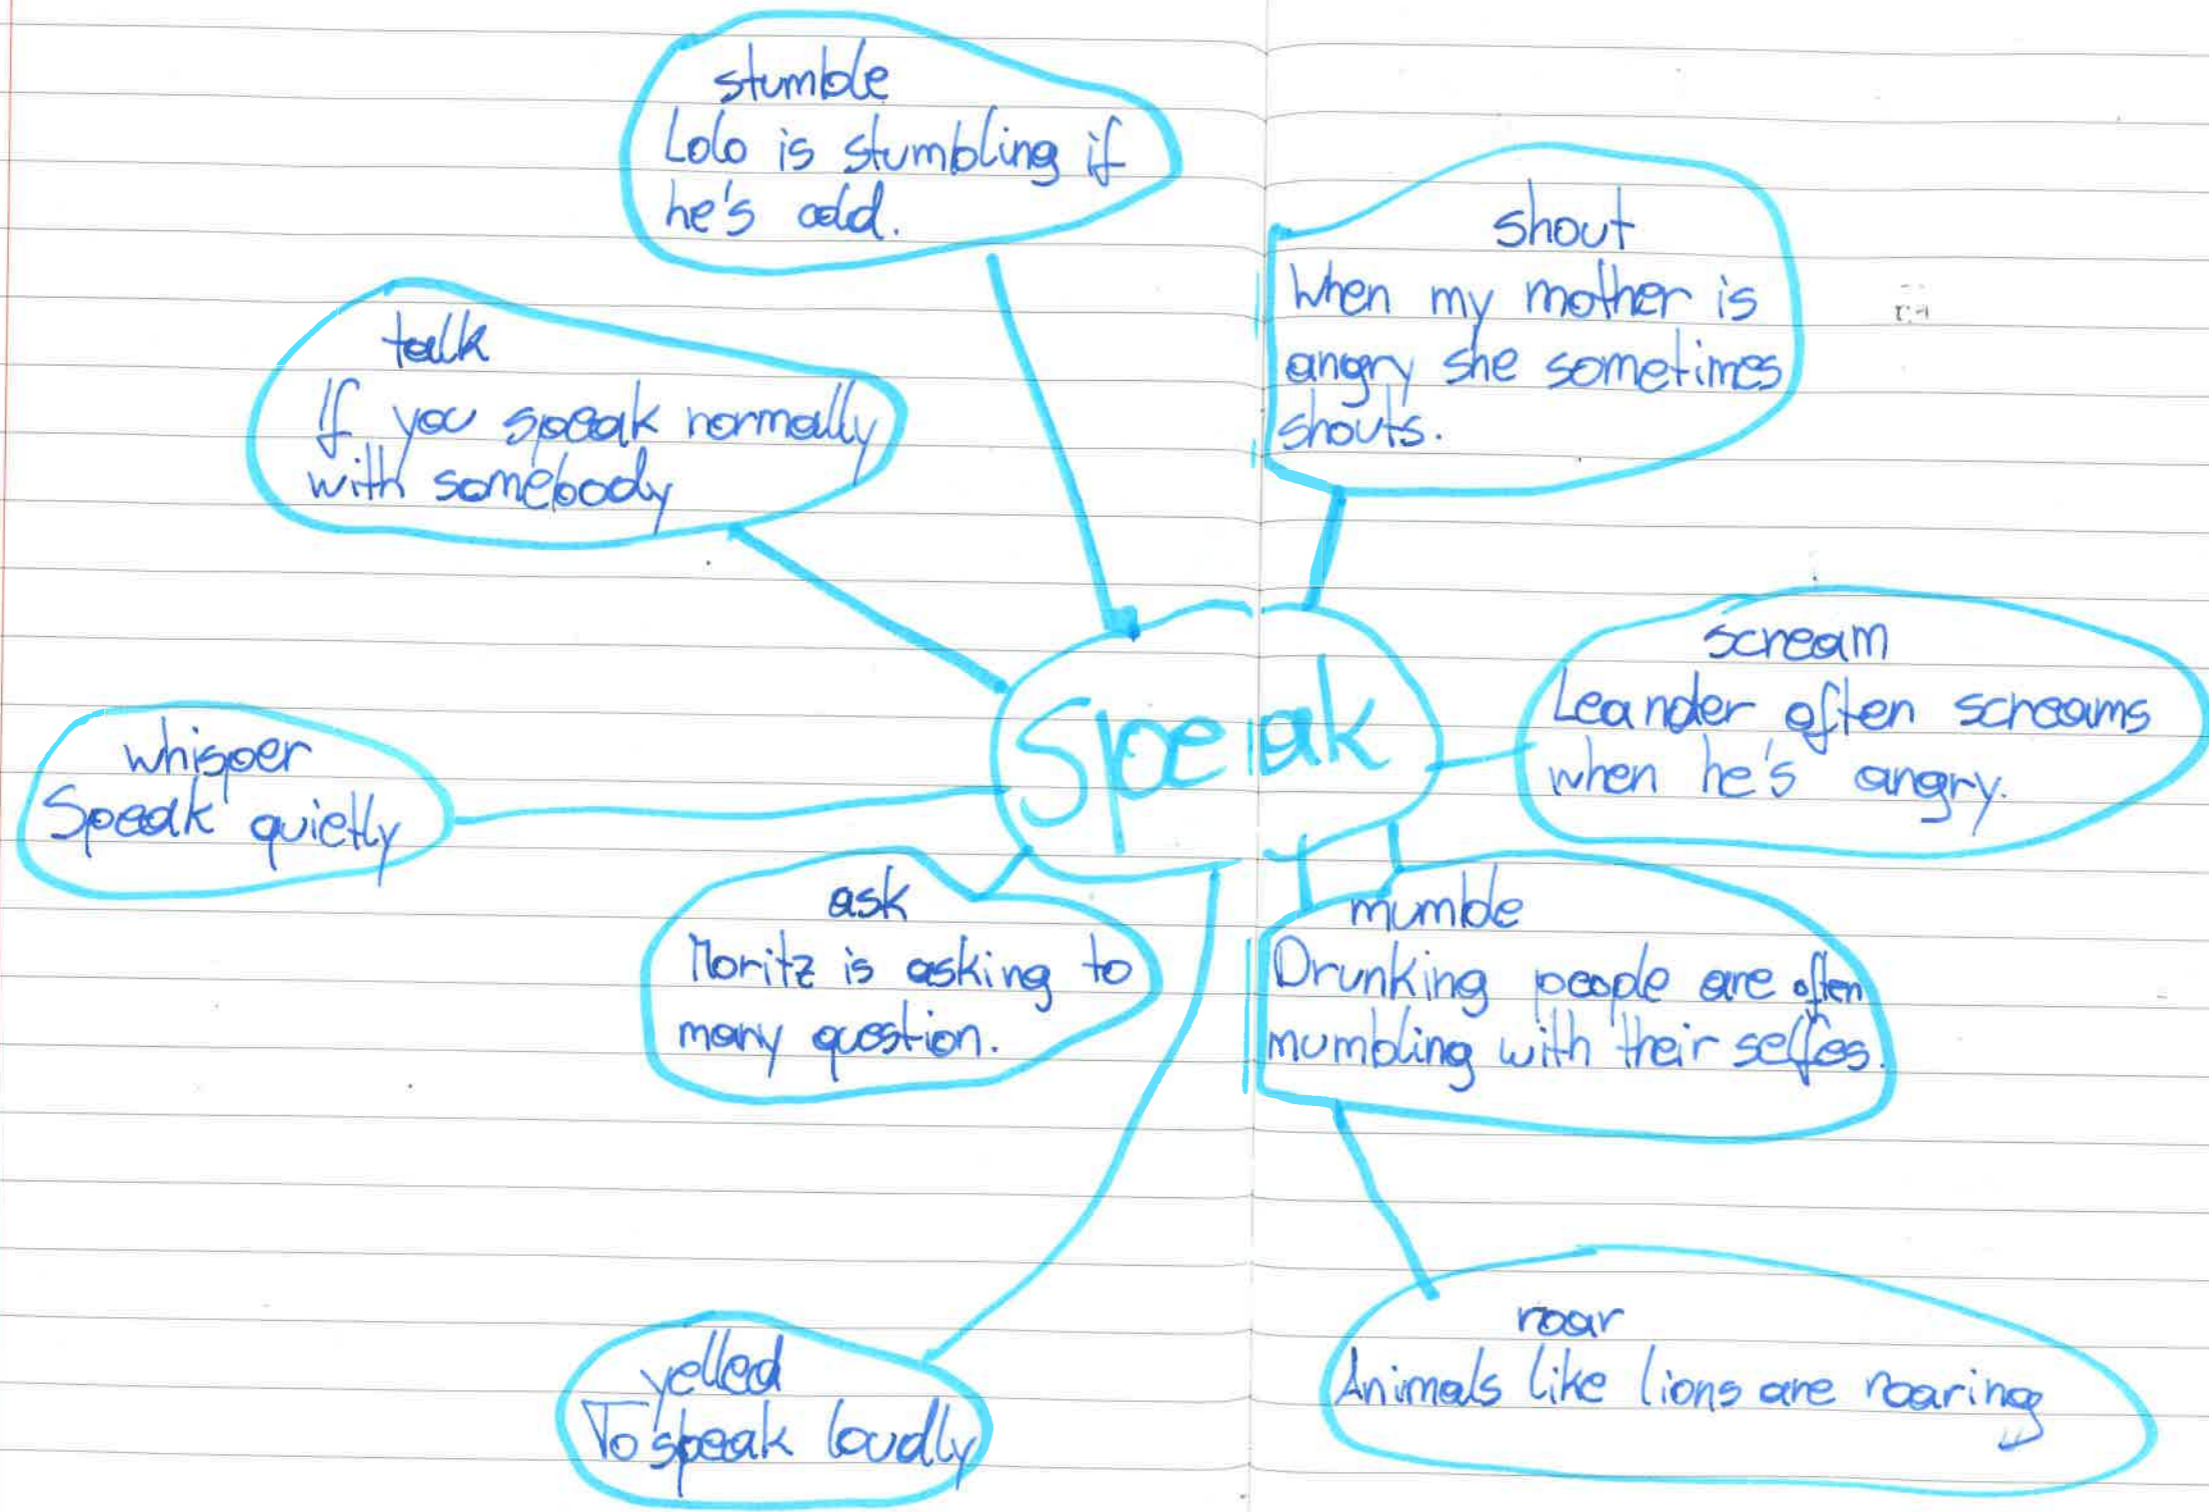 stumble
Lolo is stumbling if
he's odd.
shout
When my mother is
angry she sometimes
shouts.
talk
If you speak normally
with somebody
scream
Leander often screams
when he's angry.
Speak
whisper
Speak quietly
ask
Moritz is asking to
many question.
mumble
Drunking people are often
mumbling with their selfes.
yelled
To speak loudly
roar
Animals like lions are roaring